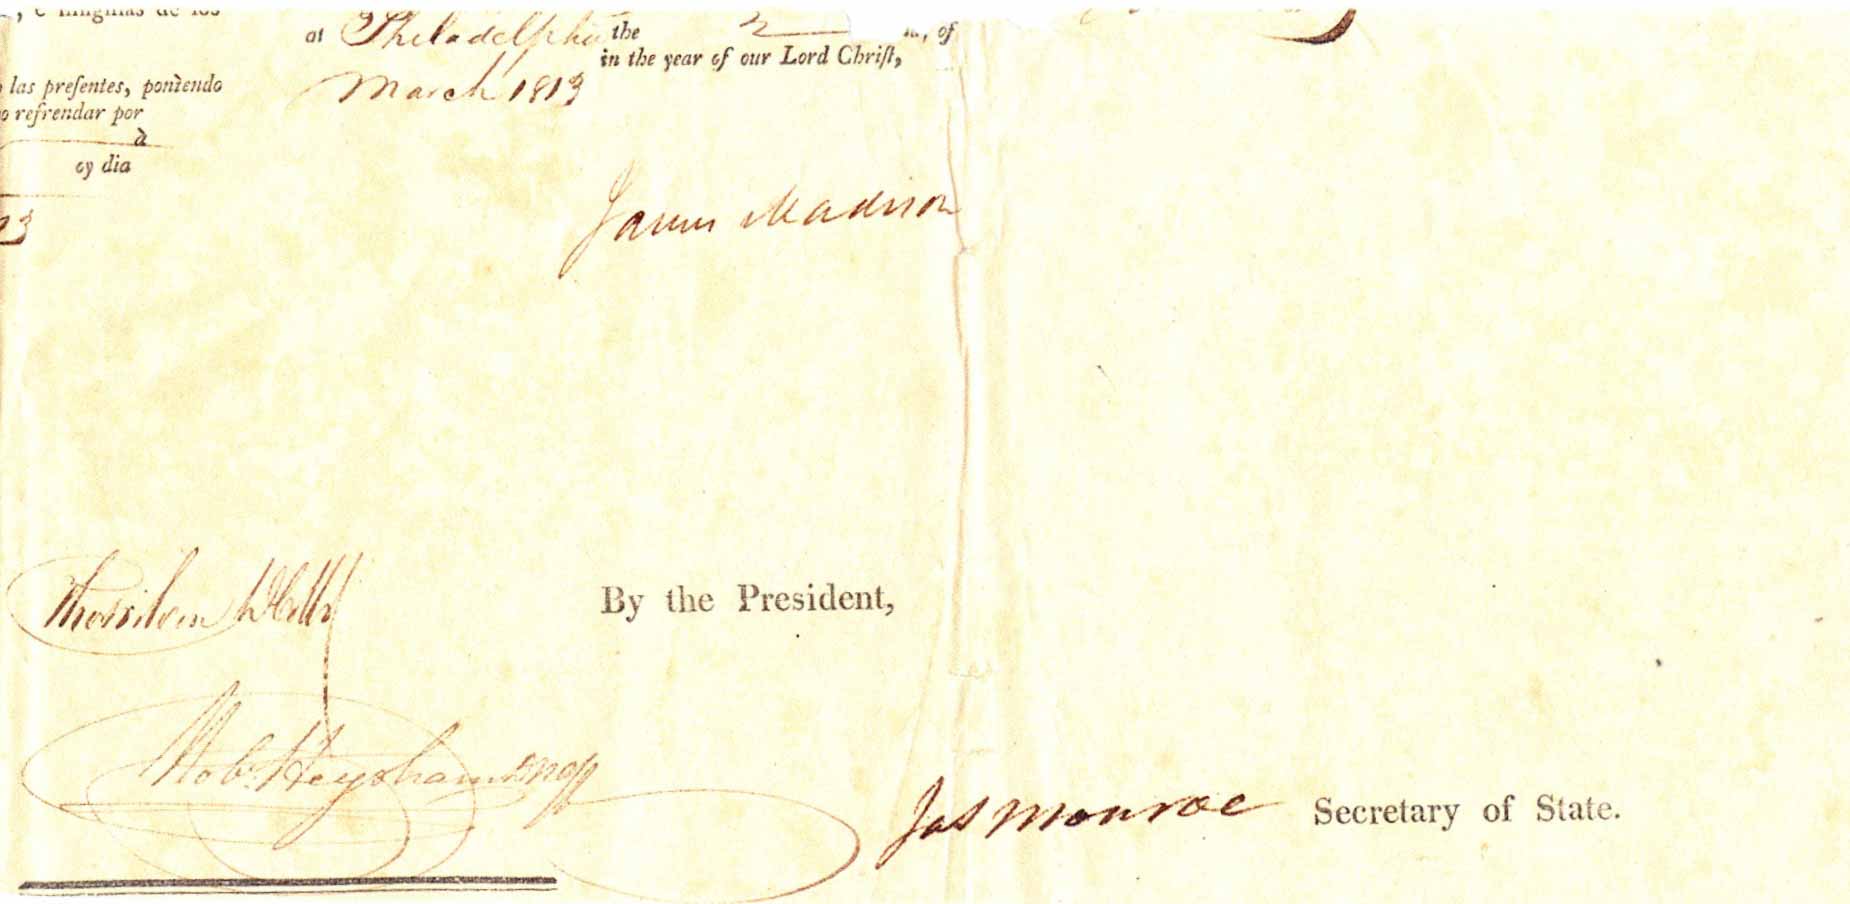 , e ningunas de los
at Philadelphia the 2 , of
in the year of our Lord Chriſt,
March 1813
las preſentes, pondendo
refrendar por
à
oy dia
13
James Madison
By the President,
Jas Monroe Secretary of State.